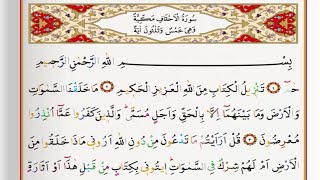 سُورَةُ الْاَحْقَافِ مَكِّيَّةٌ
وَهِيَ خَمْسٌ وَثَلٰثُونَ اٰيَةً
بِسْمِ اللّٰهِ الرَّحْمٰنِ الرَّحِيمِ
حٰمٓ ﴿١﴾ تَنْزِيلُ الْكِتَابِ مِنَ اللّٰهِ الْعَزِيزِ الْحَكِيمِ ﴿٢﴾ مَا خَلَقْنَا السَّمٰوَاتِ
وَالْاَرْضَ وَمَا بَيْنَهُمَٓا اِلَّا بِالْحَقِّ وَاَجَلٍ مُسَمًّىۜ وَالَّذِينَ كَفَرُوا عَمَّٓا اُنْذِرُوا
مُعْرِضُونَ ﴿٣﴾ قُلْ اَرَاَيْتُمْ مَا تَدْعُونَ مِنْ دُونِ اللّٰهِ اَرُونِي مَاذَا خَلَقُوا مِنَ
الْاَرْضِ اَمْ لَهُمْ شِرْكٌ فِي السَّمٰوَاتِۜ اِيتُونِي بِكِتَابٍ مِنْ قَبْلِ هٰذَٓا اَوْ اَثَارَةٍ